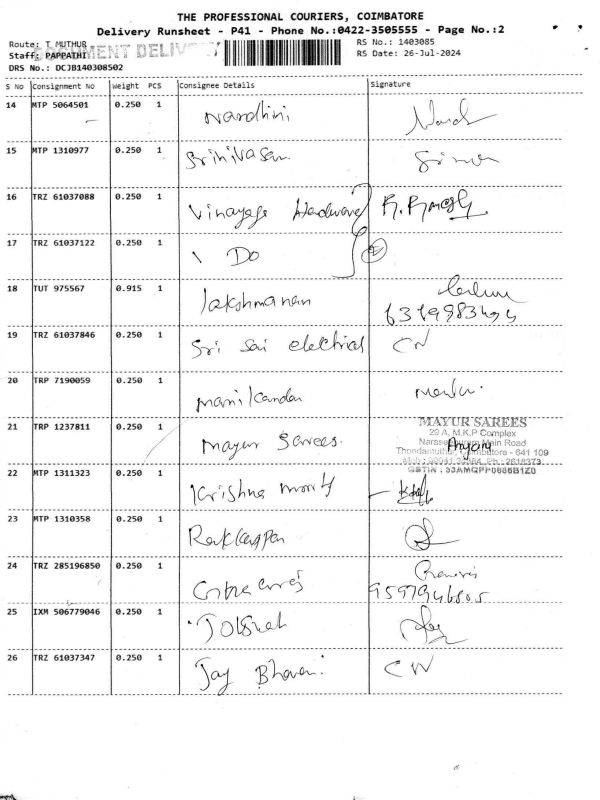 THE PROFESSIONAL COURIERS, COIMBATORE
Delivery Runsheet - P41 - Phone No.:0422-3505555 - Page No.:2
Route: T MUTHUR RS No.: 1403085
Staff: PAPPATHI RS Date: 26-Jul-2024
DRS No.: DCJB140308502
S No Consignment No Weight PCS Consignee Details Signature
14 MTP 5064501 0.250 1 Nandhini
15 MTP 1310977 0.250 1 Srinivasan
16 TRZ 61037088 0.250 1 Vinayaga Hardware
17 TRZ 61037122 0.250 1 \ Do
18 TUT 975567 0.915 1 Lakshmanan
19 TRZ 61037846 0.250 1 Sri Sai electrical CN
20 TRP 7190059 0.250 1 Manikandan
21 TRP 1237811 0.250 1 Mayur Sarees.
MAYUR SAREES
29 A, M.K.P Complex
Main Road
Coimbatore - 641 109
22 MTP 1311323 0.250 1 Krishna
23 MTP 1310358 0.250 1
24 TRZ 285196850 0.250 1
25 IXM 506779046 0.250 1
26 TRZ 61037347 0.250 1 Jay Bhavani CN